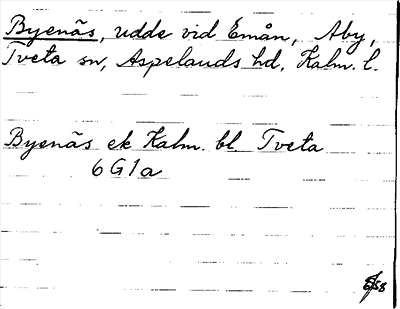 Byenäs, udde vid Emån, Aby,
Tveta sn, Aspelands hd, Kalm. l.
Byenäs ek Kalm. bl. Tveta
6G1a